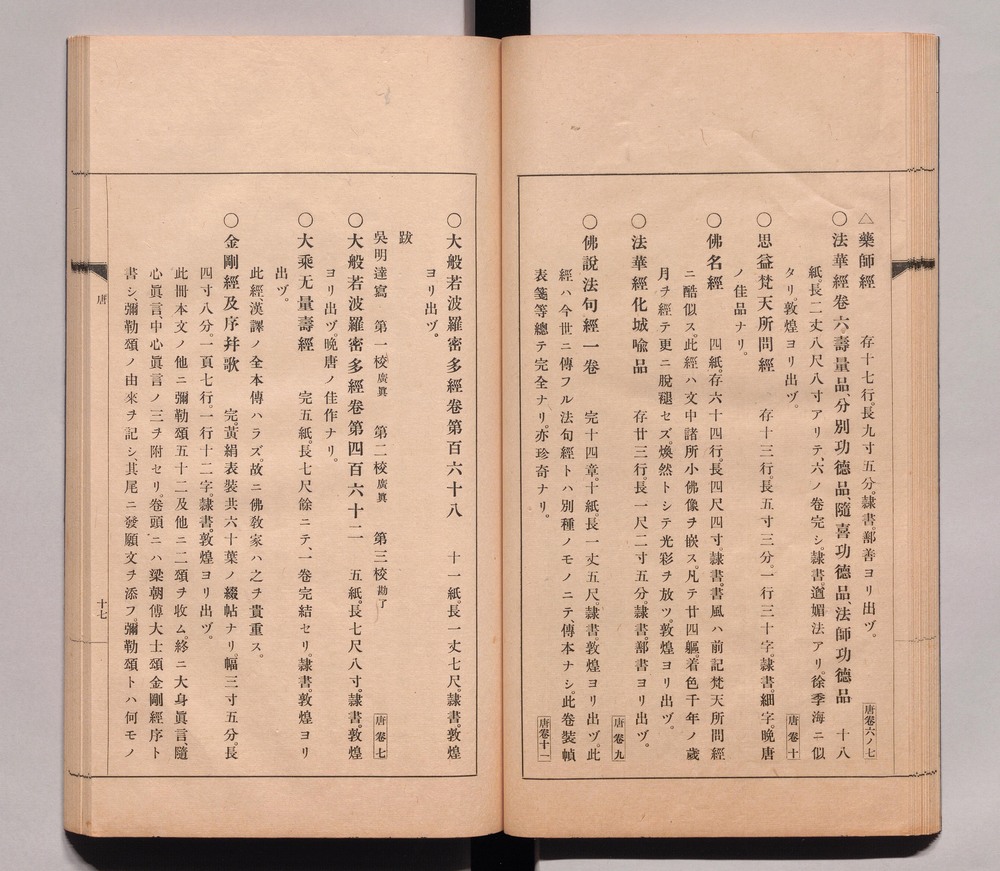 △藥師經　存十七行。長九寸五分。隷書。鄯善ヨリ出ヅ。
唐卷六ノ七
○法華經卷六壽量品、分別功德品、隨喜功德品、法師功德品　十八
紙。長二丈八尺八寸アリテ、六ノ卷完シ。隷書。遒媚法アリ。徐季海ニ似
タリ。敦煌ヨリ出ヅ。
唐卷十
○思益梵天所問經　存十三行。長五寸三分。一行三十字。隷書。細字。晩唐
ノ佳品ナリ。
○佛名經　四紙。存六十四行。長四尺四寸。隷書。書風ハ前記梵天所問經
ニ酷似ス。此經ハ文中諸所小佛像ヲ嵌ス。凡テ廿四軀。着色千年ノ歲
月ヲ經テ更ニ脫褪セズ。煥然トシテ光彩ヲ放ツ。敦煌ヨリ出ヅ。
唐卷九
○法華經化城喩品　存廿三行。長一尺二寸五分。隷書。鄯書ヨリ出ヅ。
○佛說法句經一卷　完十四章。十紙。長一丈五尺。隷書。敦煌ヨリ出ヅ。此
經ハ今世ニ傳フル法句經トハ別種ノモノニテ、傳本ナシ。此卷裝幀
表箋等總テ完全ナリ。亦珍奇ナリ。
唐卷十一
○大般若波羅密多經卷第百六十八　十一紙。長一丈七尺。隷書。敦煌
ヨリ出ヅ。
跋
吳明達寫　第一校廣眞　第二校廣眞　第三校勘了
唐卷七
○大般若波羅密多經卷第四百六十二　五紙。長七尺八寸。隷書。敦煌
ヨリ出ヅ。晩唐ノ佳作ナリ。
○大乘无量壽經　完五紙。長七尺餘ニテ、一卷完結セリ。隷書。敦煌ヨリ
出ヅ。
此經漢譯ノ全本傳ハラズ。故ニ佛敎家ハ之ヲ貴重ス。
○金剛經及序幷歌　完。黃絹表裝共六十葉ノ綴帖ナリ。幅三寸五分。長
四寸八分。一頁七行。一行十二字。隷書。敦煌ヨリ出ヅ。
此冊本文ノ他ニ彌勒頌五十二及他ニ二頌ヲ收ム。終ニ大身眞言、隨
心眞言、中心眞言ノ三ヲ附セリ。卷頭ニハ梁朝傅大士頌金剛經序ト
書シ、彌勒頌ノ由來ヲ記シ、其尾ニ發願文ヲ添フ。彌勒頌トハ何モノ
唐
十七